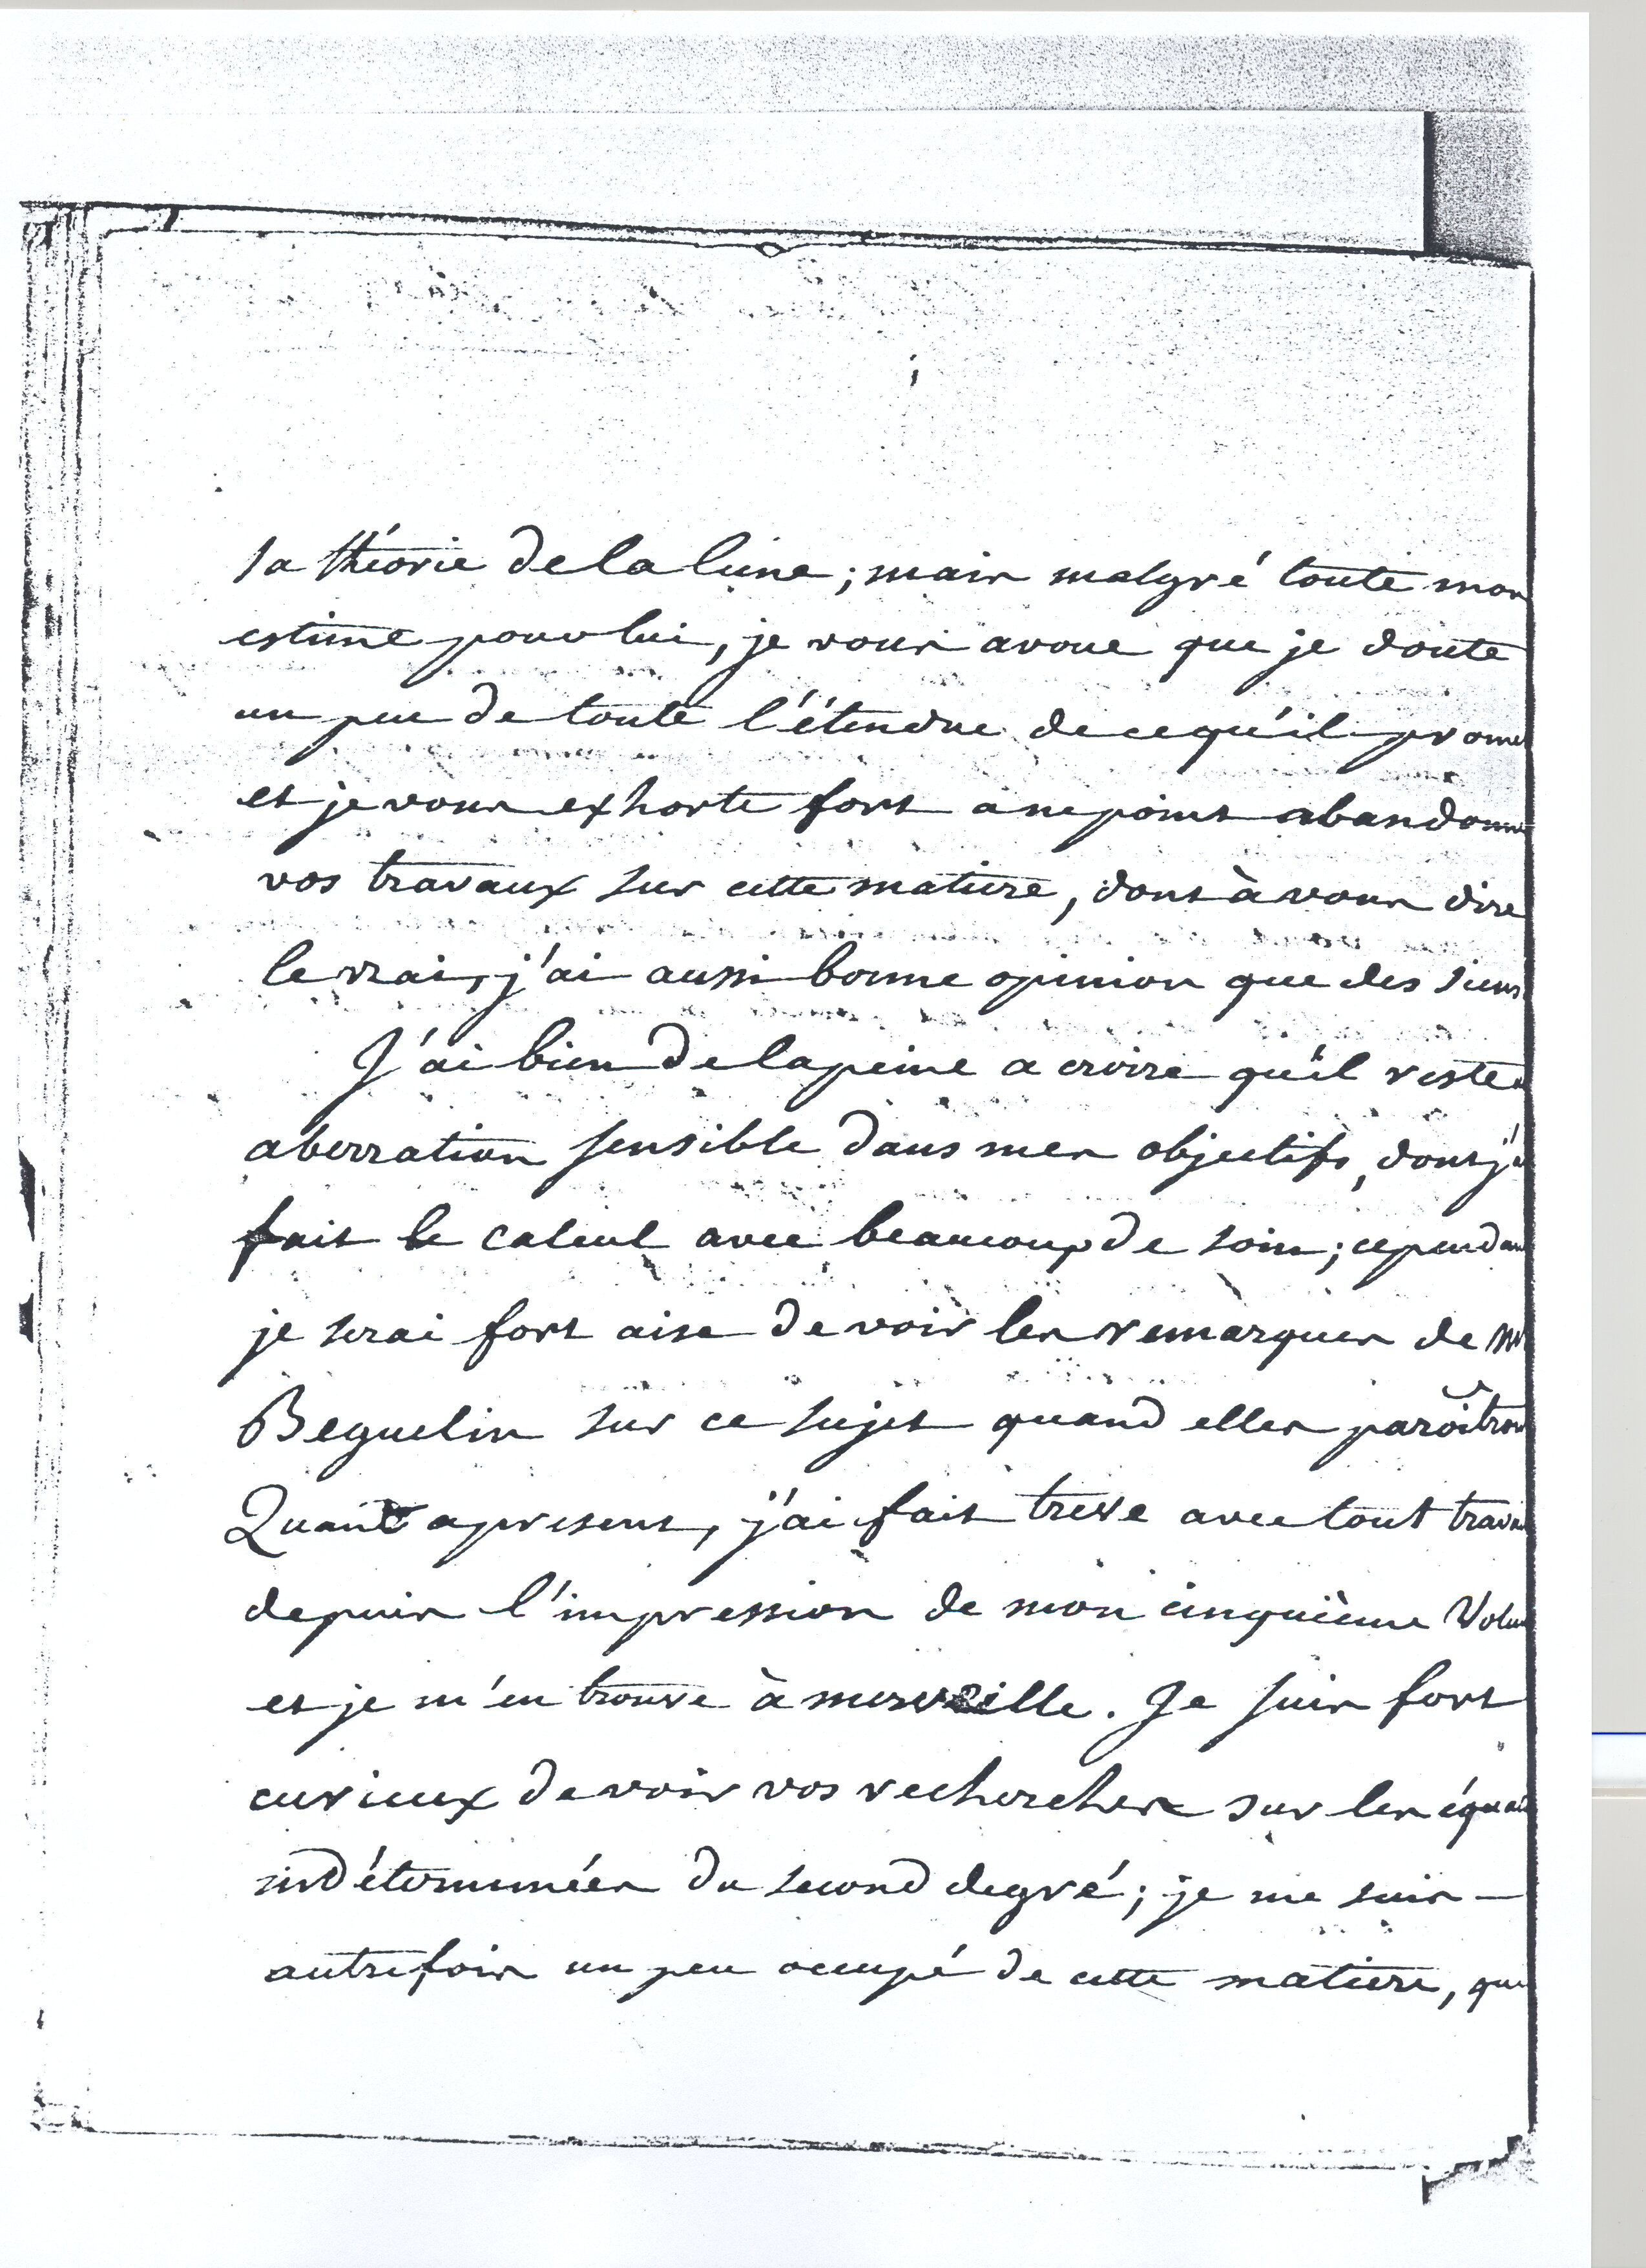 sa théorie de la lune; mais malgré toute mon
estime pour lui, je vous avoue que je doute
un peu de toute l'étendue de ce qu'il prome
et je vous exhorte fort a ne point abandonne
vos travaux sur cette matiere, dont à vous dire
le vrai, j'ai aussi bonne opinion que des siens
J'ai bien de la peine a croire qu'il reste
aberration sensible dans mes objectifs, dont j'a
fait le calcul avec beaucoup de soin; cependan
je serai fort aise de voir les remarques de Mr
Beguelin sur ce sujet quand elles paroîtron
Quant a present, j'ai fait treve avec tout trava
depuis l'impression de mon cinquième Volu
et je m'en trouve à merveille. Je suis fort
curieux de voir vos recherches sur les équa
indéterminées du second degré; je me suis —
autrefois un peu occupé de cette matiere, que